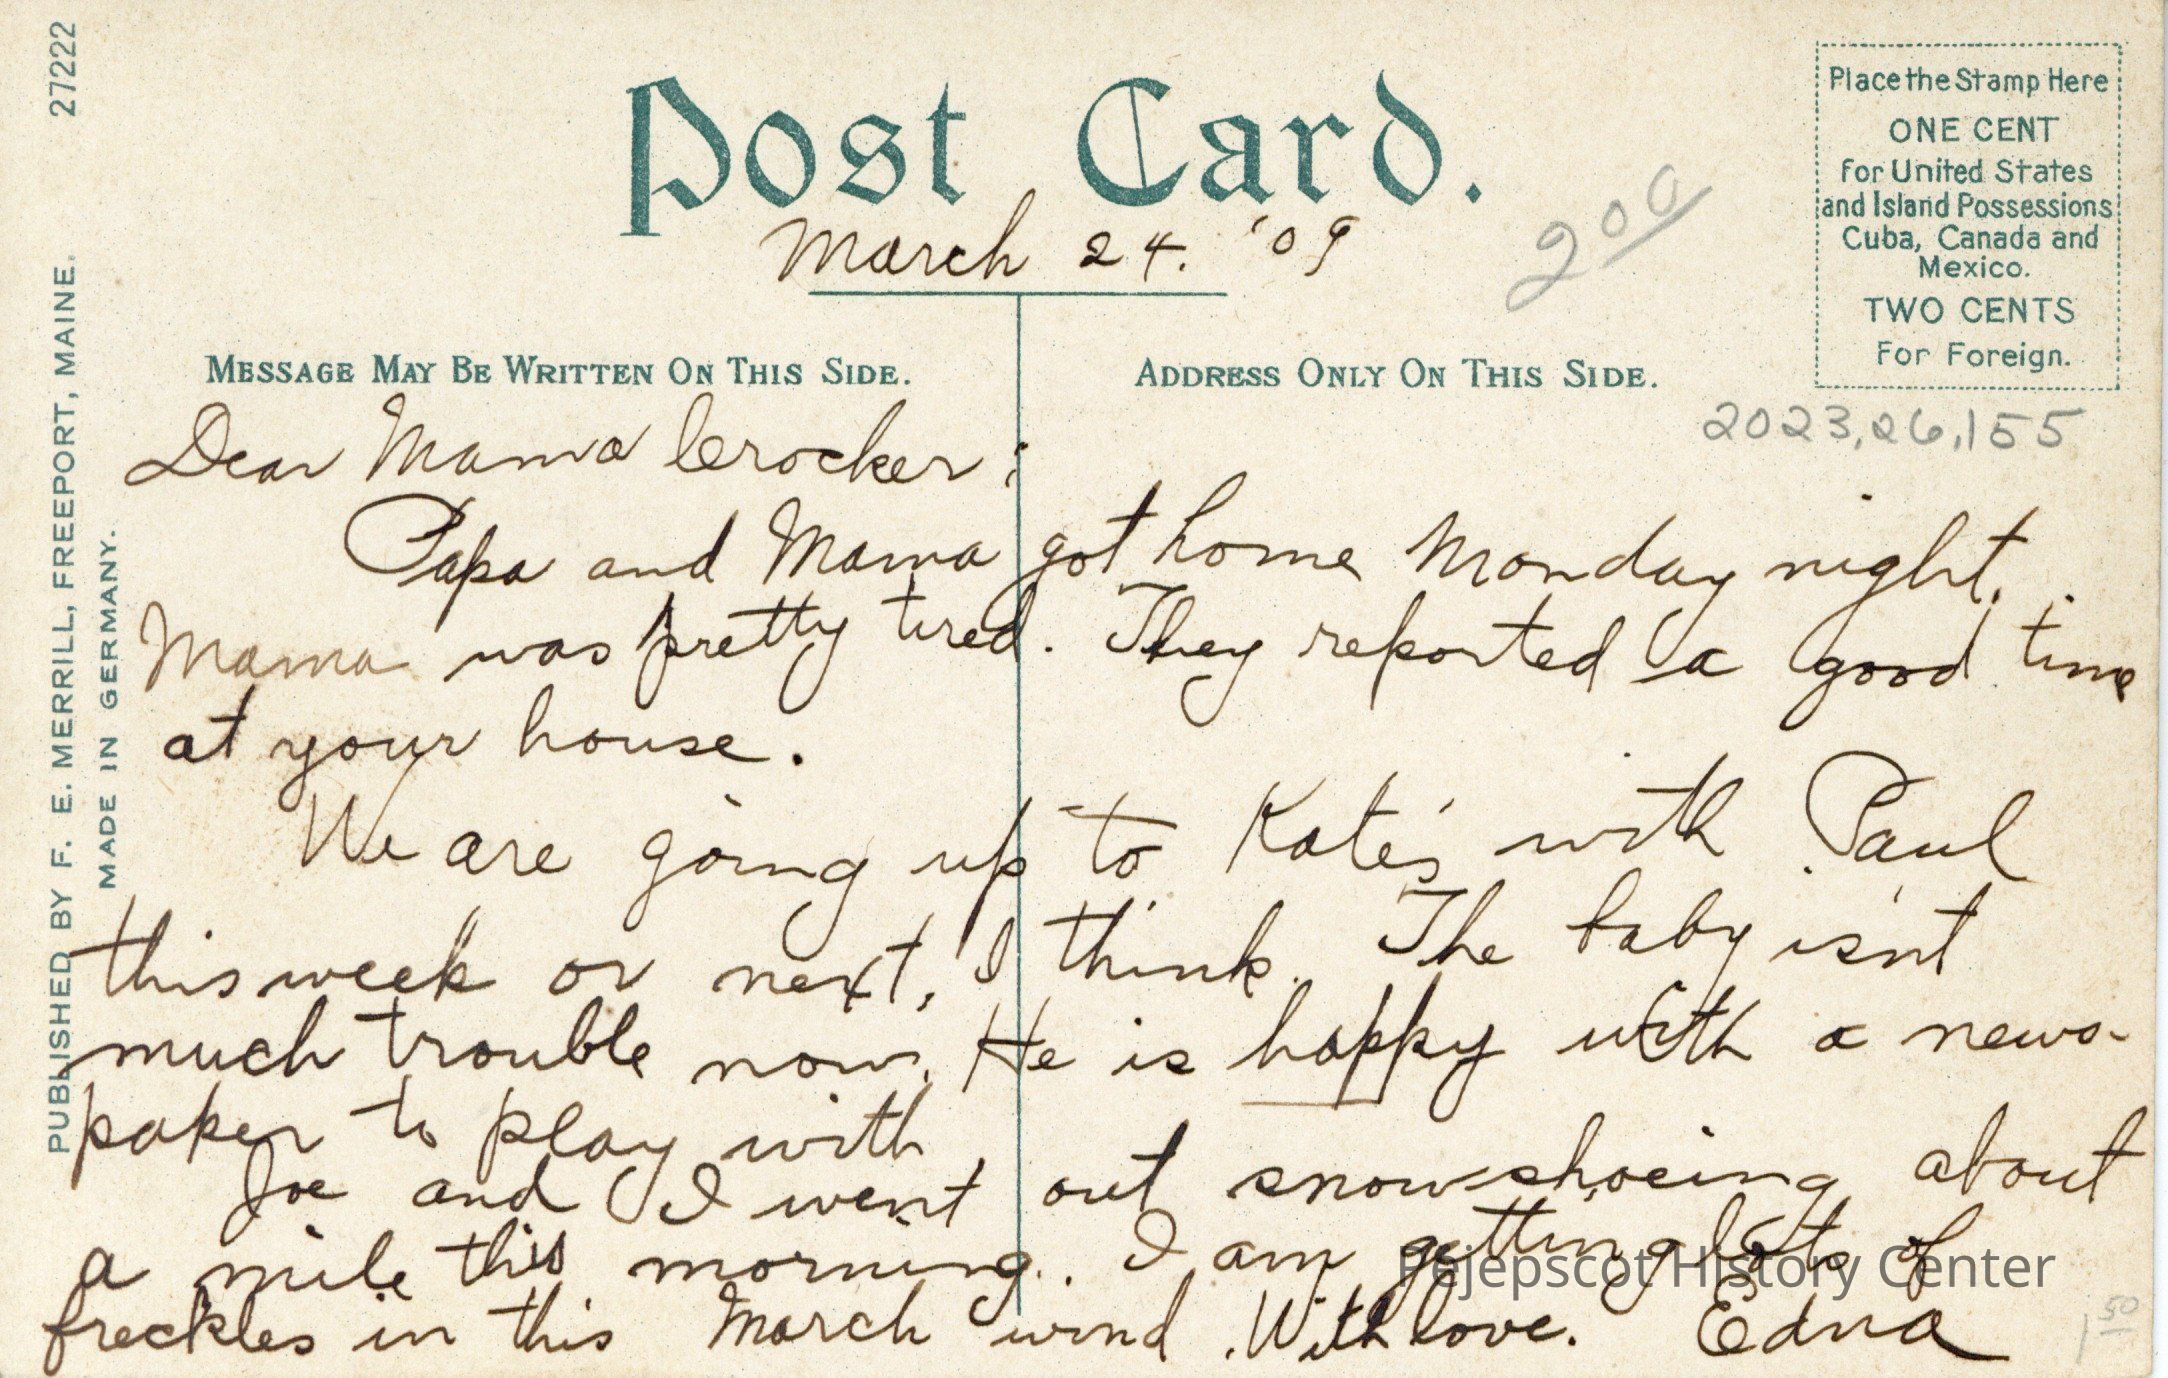 27222
PUBLISHED BY F. E. MERRILL, FREEPORT, MAINE.
MADE IN GERMANY.
Post Card.
Place the Stamp Here
ONE CENT
for United States
and Island Possessions
Cuba, Canada and
Mexico.
TWO CENTS
For Foreign.
200
March 24. '09
MESSAGE MAY BE WRITTEN ON THIS SIDE.
ADDRESS ONLY ON THIS SIDE.
2023.26.155
Dear Mama Crocker:
Papa and Mama got home Monday night.
Mama was pretty tired. They reported a good time
at your house.
We are going up to Kate's with Paul
this week or next, I think. The baby isn't
much trouble now. He is happy with a news-
paper to play with
Joe and I went out snowshoeing about
a mile this morning. I am getting lots of
freckles in this March wind. With love. Edna
Pejepscot History Center
1 50